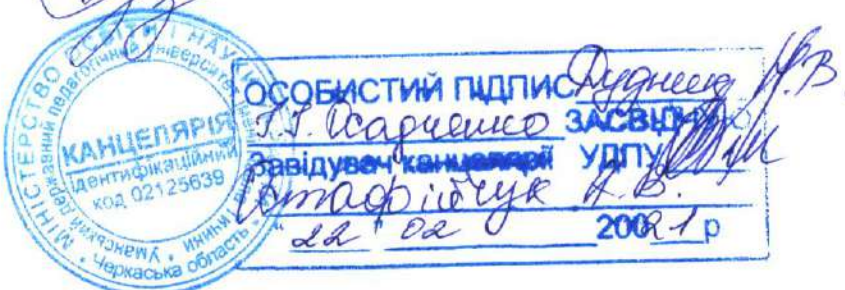 МІНІСТЕРСТВО ОСВІТИ І НАУКИ
державний педагогічний університет
Уманський
Черкаська область
КАНЦЕЛЯРІЯ
ідентифікаційний
код 02125639
ОСОБИСТИЙ ПІДПИС Дудник Н.В.
І.І. Осадченко ЗАСВІДЧУЮ
Завідувач канцелярії УДПУ
Астафійчук
"22" 02 20021 р